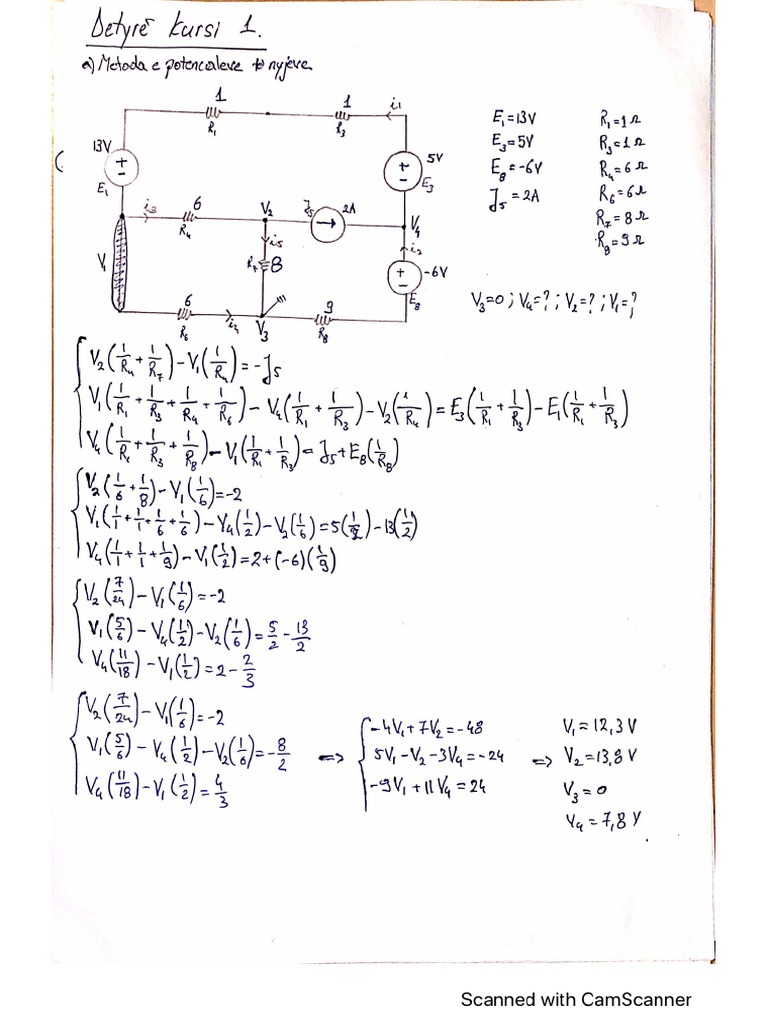 Detyrë kursi 1.
a) Metoda e potencialeve të nyjeve
1 1 i1
R1 R3
13V + - E1
5V + - E3
i3 6 R4 V2 J5 2A V4
V1 i5 R7 8 i2
+ - -6V E8
6 R6 i4 V3 9 R8
E1=13V R1=1Ω
E3=5V R3=1Ω
E8=-6V R4=6Ω
J5=2A R6=6Ω
R7=8Ω
R8=9Ω
V3=0; V4=?; V2=?; V1=?;
V2(1/R4+1/R7)-V1(1/R4)=-J5
V1(1/R1+1/R3+1/R4+1/R6)-V4(1/R1+1/R3)-V2(1/R4)=E3(1/R1+1/R3)-E1(1/R1+1/R3)
V4(1/R1+1/R3+1/R8)-V1(1/R1+1/R3)=J5+E8(1/R8)
V2(1/6+1/8)-V1(1/6)=-2
V1(1/1+1/1+1/6+1/6)-V4(1/2)-V2(1/6)=5(1/2)-13(1/2)
V4(1/1+1/1+1/9)-V1(1/2)=2+(-6)(1/9)
V2(7/24)-V1(1/6)=-2
V1(5/6)-V4(1/2)-V2(1/6)=5/2-13/2
V4(11/18)-V1(1/2)=2-2/3
V2(7/24)-V1(1/6)=-2
V1(5/6)-V4(1/2)-V2(1/6)=-8/2
V4(11/18)-V1(1/2)=4/3
=> -4V1+7V2=-48
5V1-V2-3V4=-24
-9V1+11V4=24
=> V1=12,3V
V2=13,8V
V3=0
V4=7,8V
Scanned with CamScanner